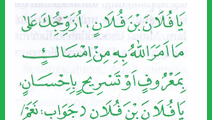 يَا فُلَانَ بْنَ فُلَانٍ، اُزَوِّجُكَ عَلَى
مَا اَمَرَ اللهُ بِهِ مِنْ اِمْسَاكٍ
بِمَعْرُوْفٍ اَوْ تَسْرِيْحٍ بِاِحْسَانٍ،
يَا فُلَانَ بْنَ فُلَانٍ (جَوَابْ: نَعَمْ